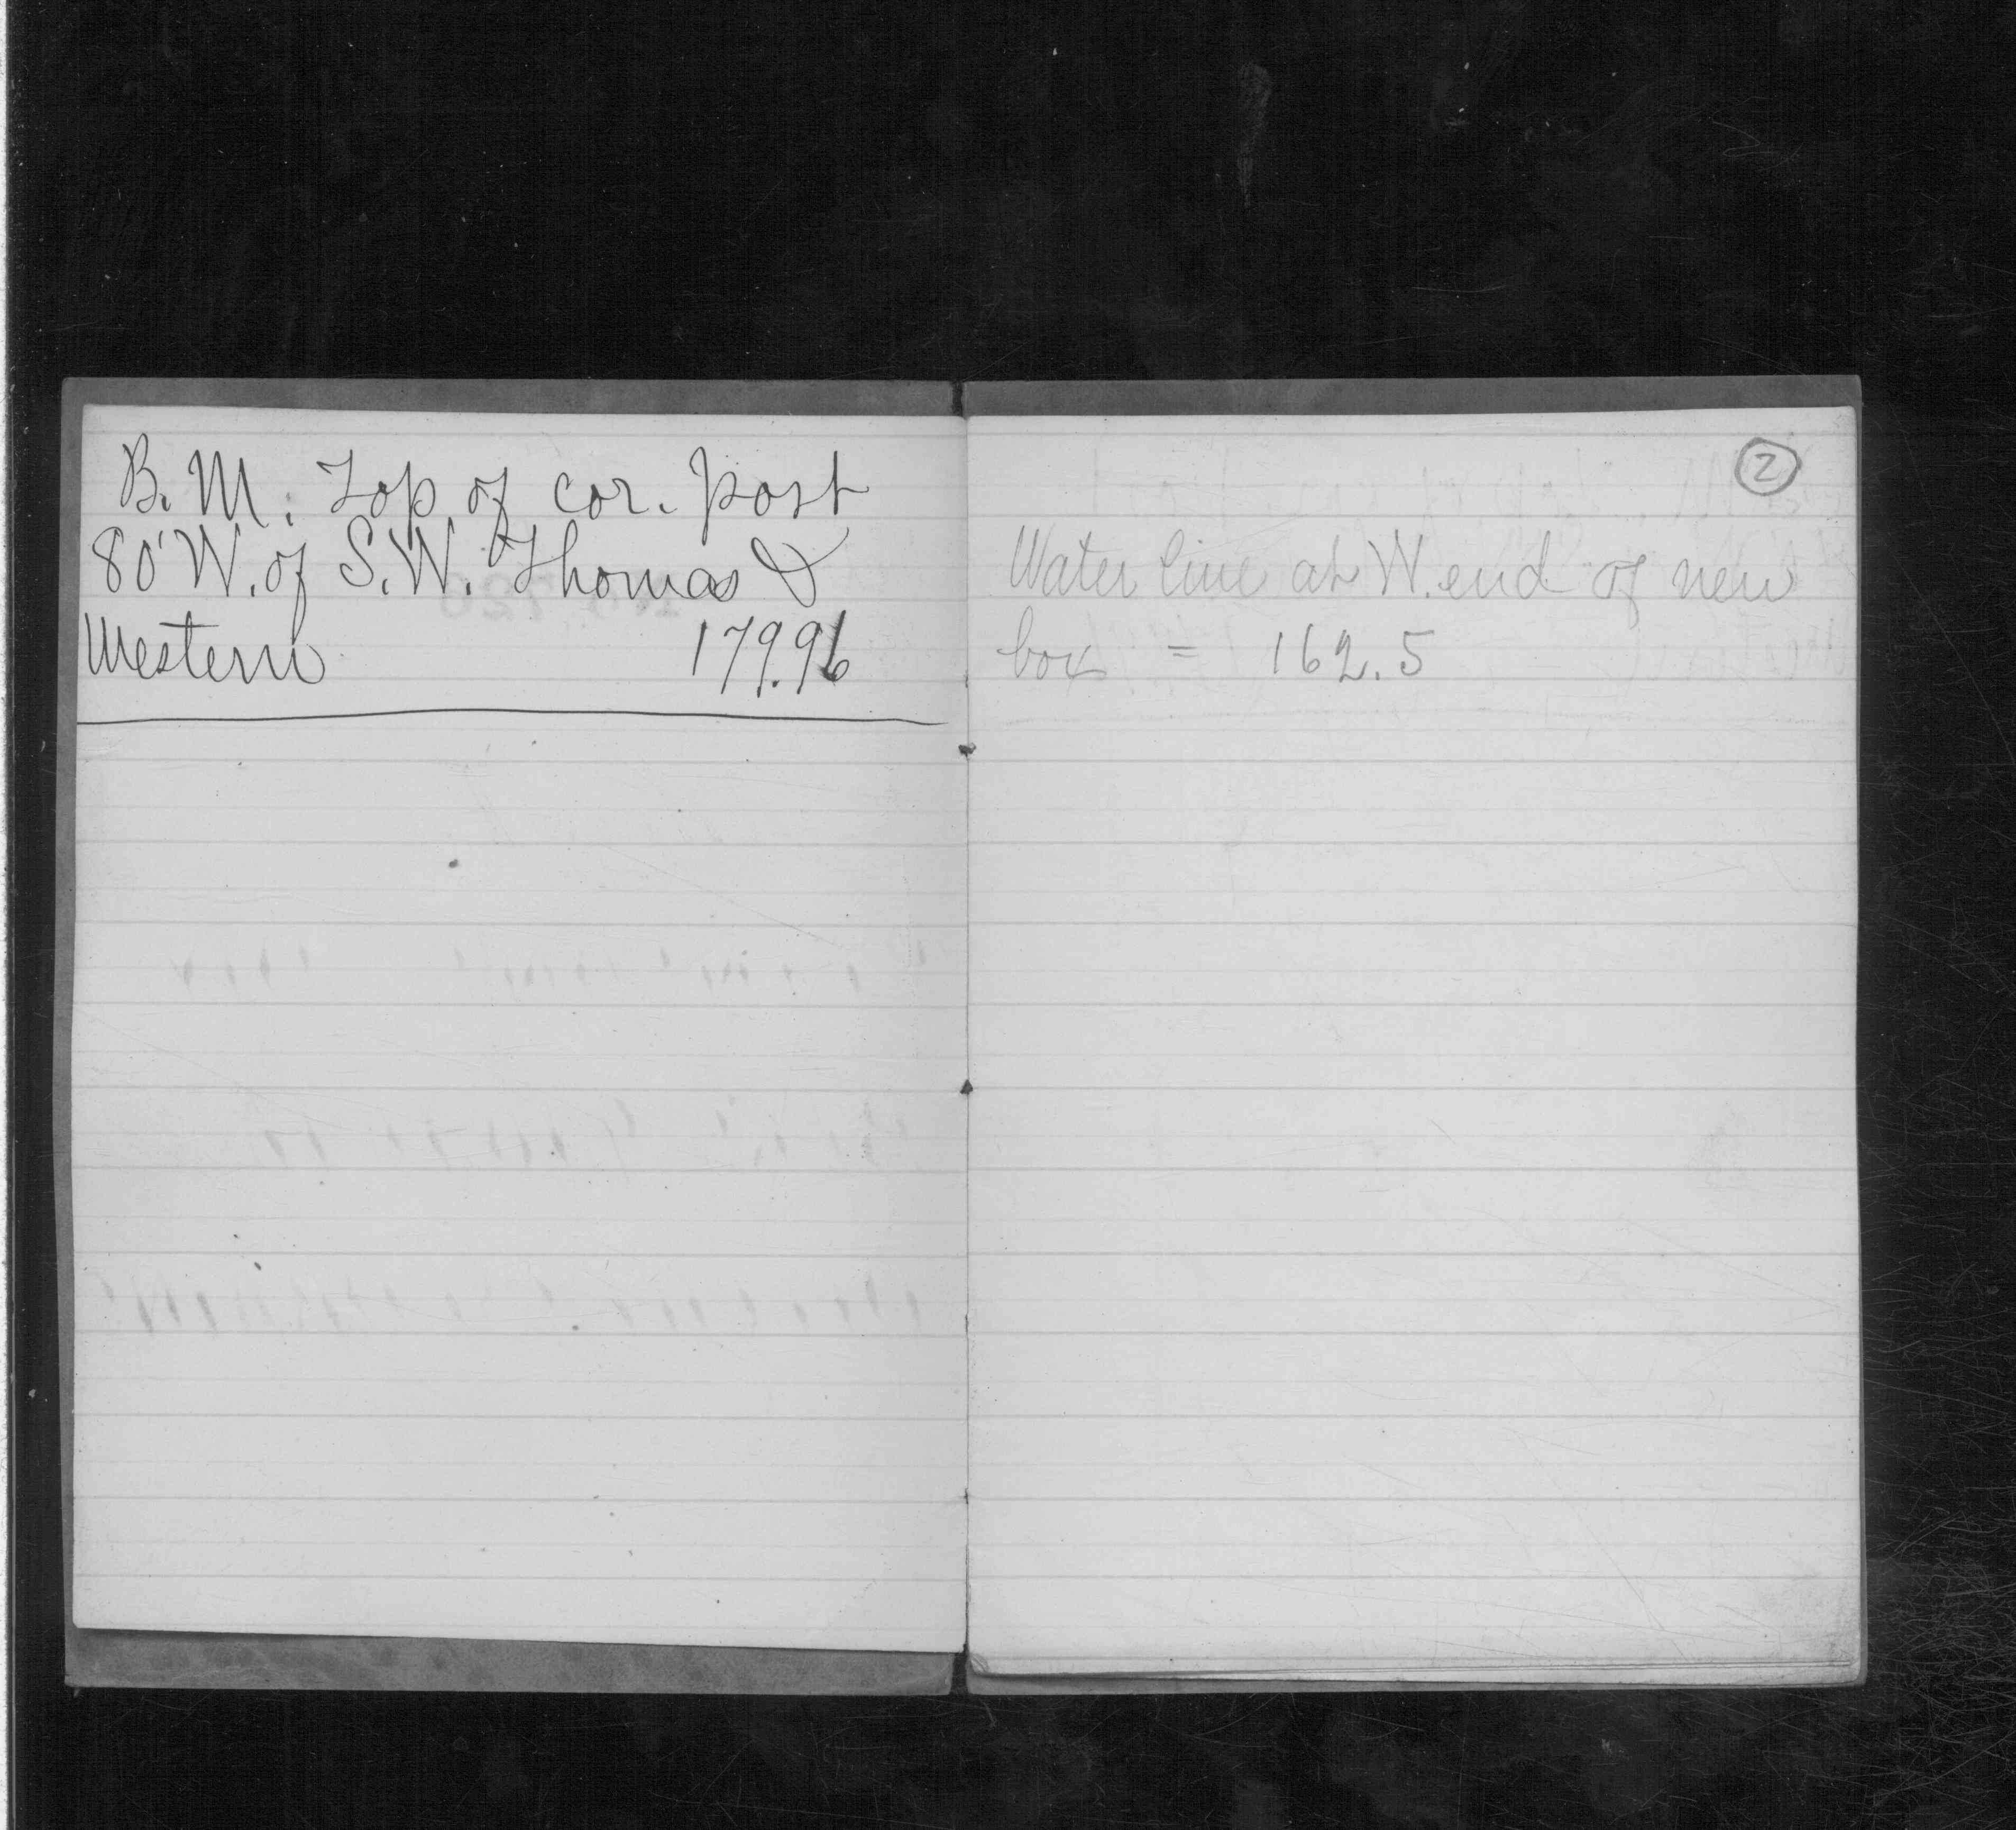 B.M: Top of cor. post
80' W. of S.W. Thomas &
Western 179.96
2
Water line at W. end of new
box = 162.5